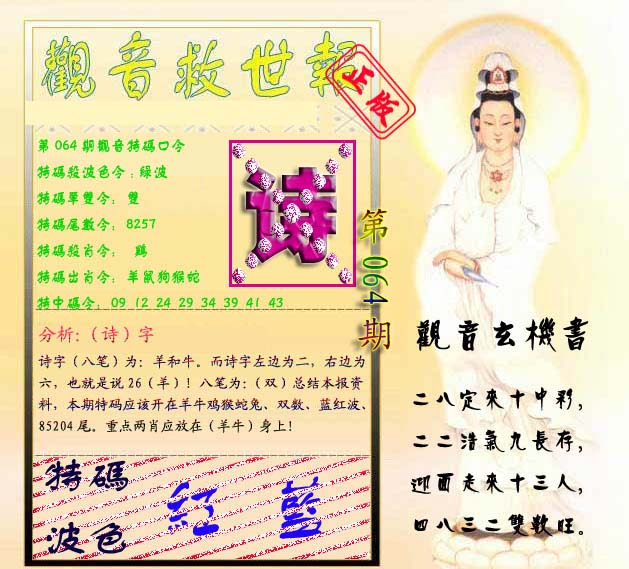 觀音救世報
正版
第064期觀音特碼口令
特碼殺波色令：綠波
特碼單雙令： 雙
特碼尾數令： 8257
特碼殺肖令： 鷄
特碼出肖令： 羊鼠狗猴蛇
特中碼令： 09 12 24 29 34 39 41 43
诗
第064期
分析:（诗）字
诗字（八笔）为：羊和牛。而诗字左边为二，右边为
六，也就是说26（羊）！八笔为：（双）总结本报资
料，本期特码应该开在羊牛鸡猴蛇兔、双数、蓝红波、
85204尾。重点两肖应放在（羊牛）身上！
特碼
波色
紅 藍
觀音玄機書
二八定來十中彩，
二二浩氣九長存，
迎面走來十三人，
四八三二雙數旺。